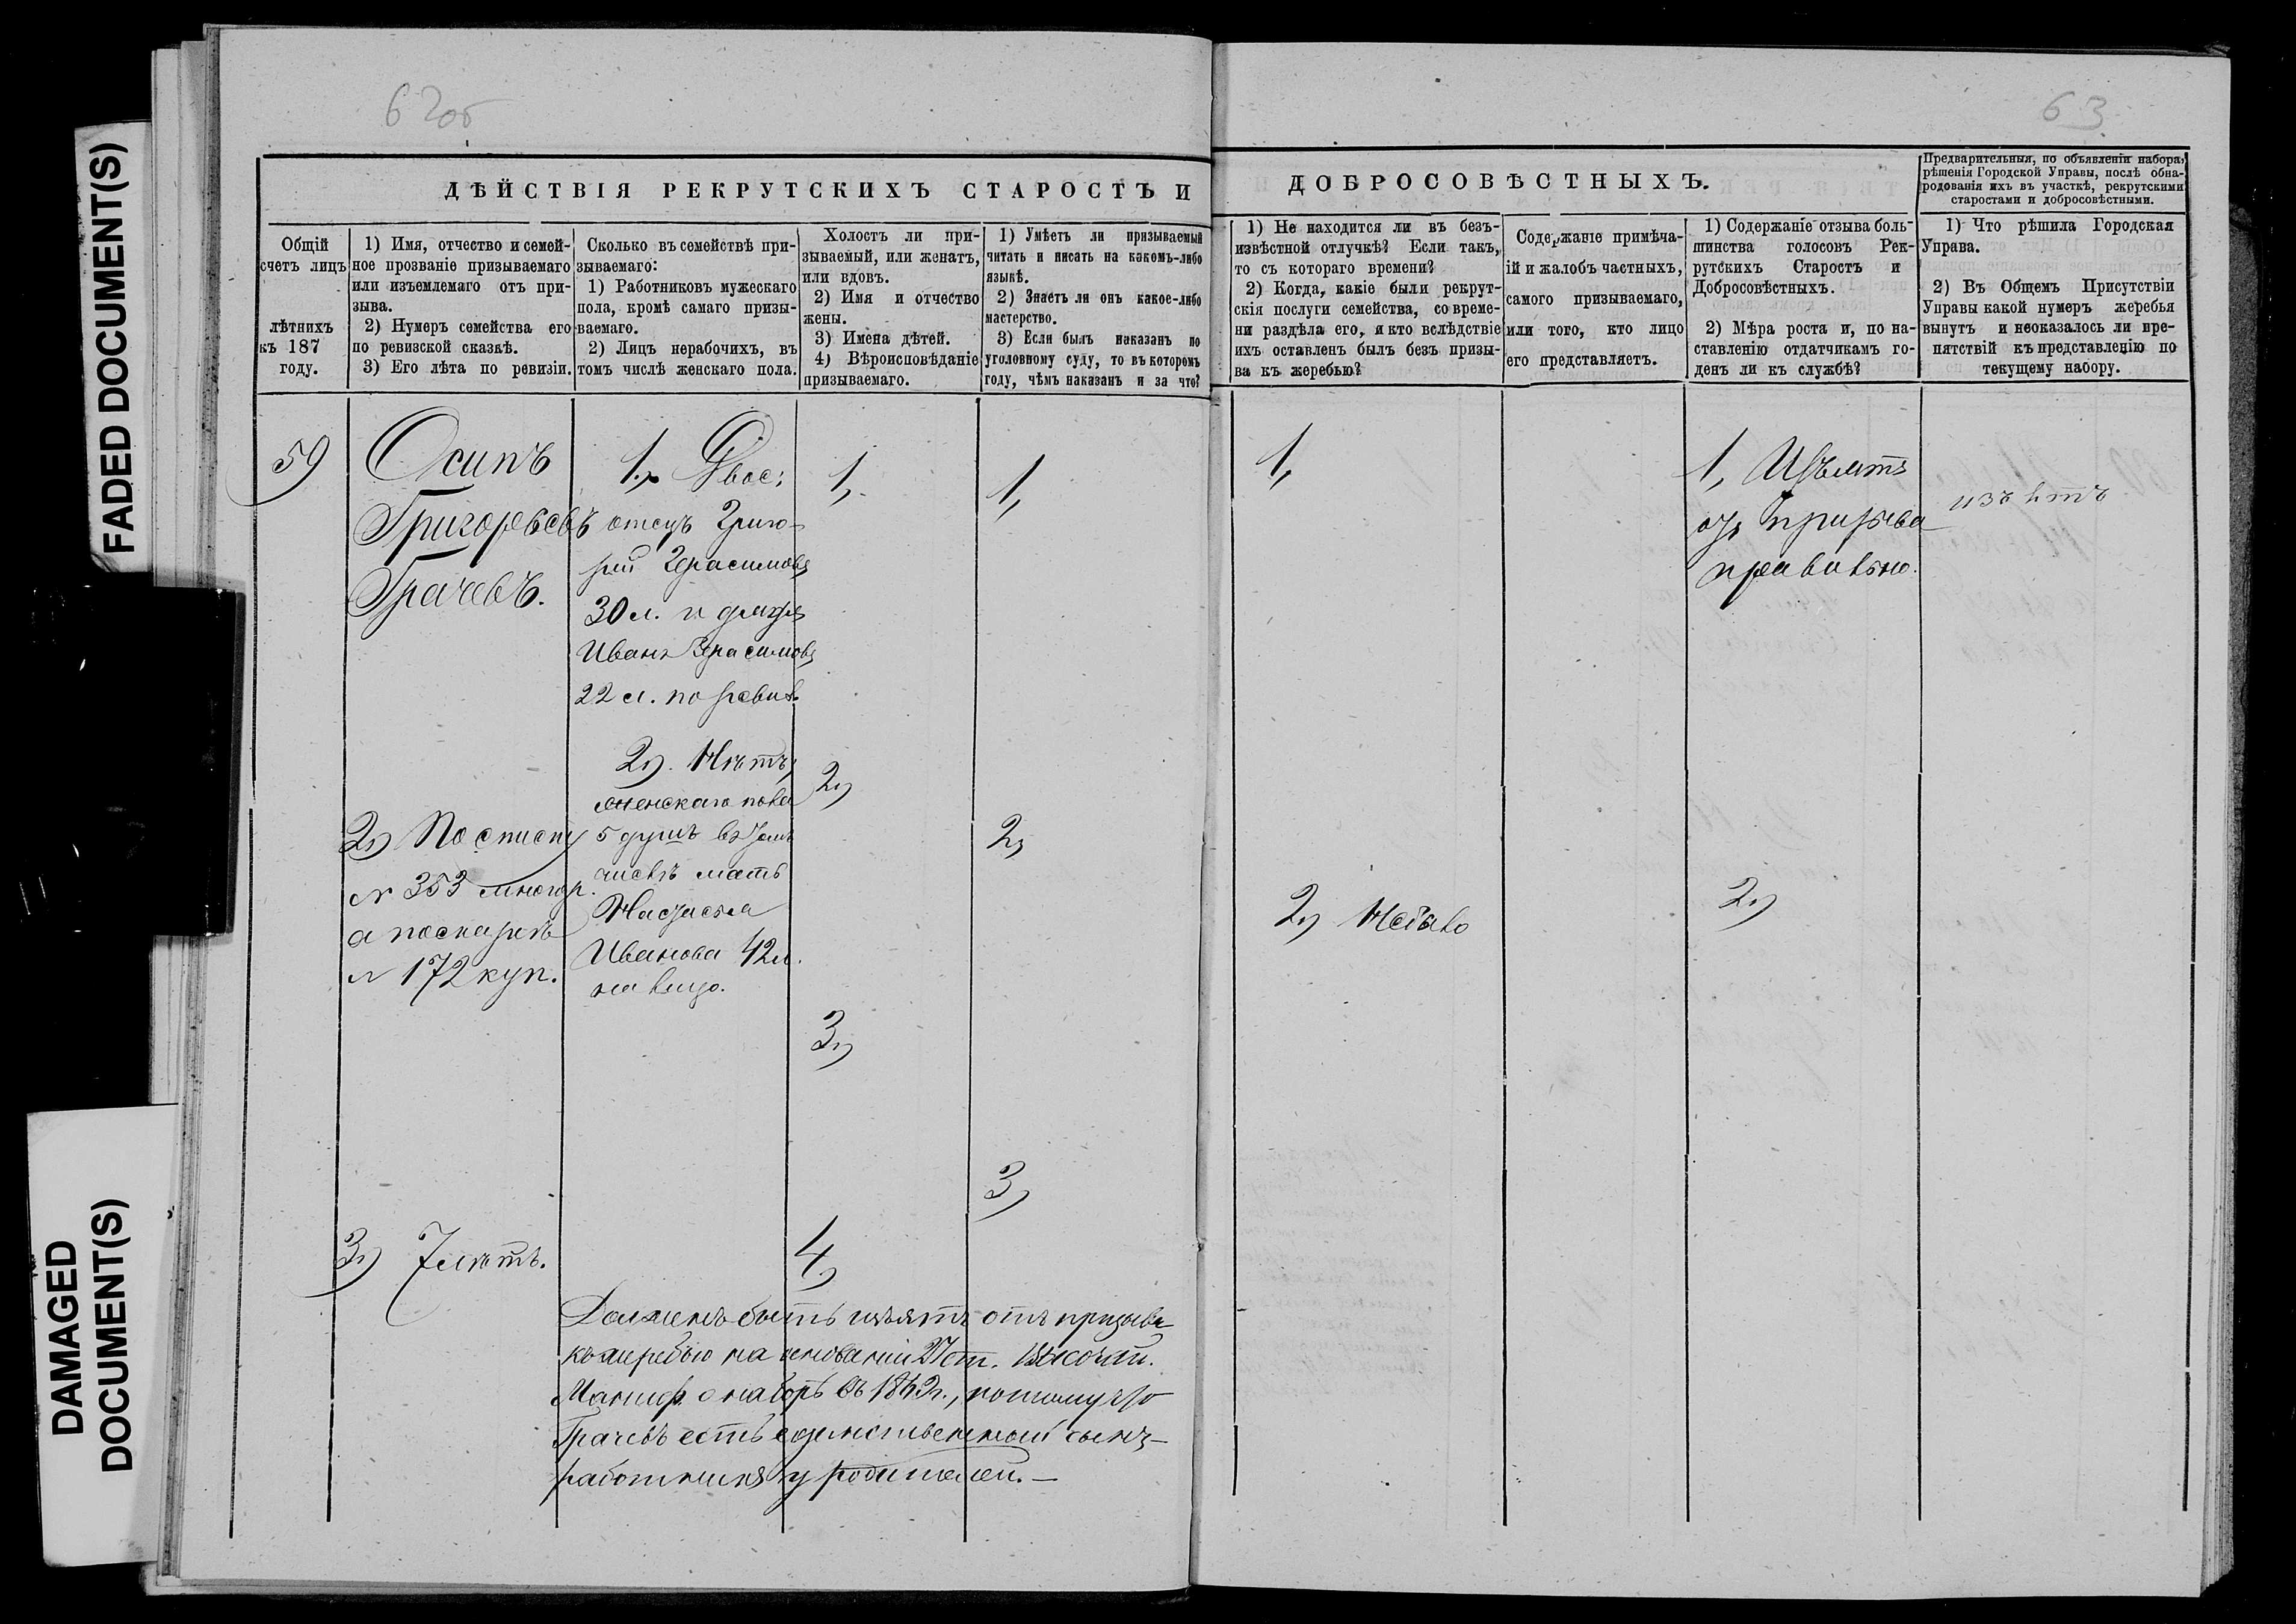 FADED DOCUMENT(S)
DAMAGED
DOCUMENT(S)
62об
63
ДѢЙСТВІЯ РЕКРУТСКИХЪ СТАРОСТЪ И
ДОБРОСОВѢСТНЫХЪ.
Предварительныя, по объявленіи набора,
рѣшенія Городской Управы, послѣ обна-
родованія ихъ въ участкѣ, рекрутскими
старостами и добросовѣстными.
Общій
счетъ лицъ
лѣтнихъ
къ 187
году.
1) Имя, отчество и семей-
ное прозваніе призываемаго
или изъемлемаго отъ при-
зыва.
2) Нумеръ семейства его
по ревизской сказкѣ.
3) Его лѣта по ревизіи.
Сколько въ семействѣ при-
зываемаго:
1) Работниковъ мужескаго
пола, кромѣ самаго призы-
ваемаго.
2) Лицъ нерабочихъ, въ
томъ числѣ женскаго пола.
Холостъ ли при-
зываемый, или женатъ,
или вдовъ.
2) Имя и отчество
жены.
3) Имена дѣтей.
4) Вѣроисповѣданіе
призываемаго.
1) Умѣетъ ли призываемый
читать и писать на какомъ-либо
языкѣ.
2) Знаетъ ли онъ какое-либо
мастерство.
3) Если былъ наказанъ по
уголовному суду, то въ которомъ
году, чѣмъ наказанъ и за что?
1) Не находится ли въ безъ-
извѣстной отлучкѣ? Если такъ,
то съ котораго времени?
2) Когда, какіе были рекрут-
скія послуги семейства, со време-
ни раздѣла его, и кто вслѣдствіе
ихъ оставленъ былъ безъ призы-
ва къ жеребью?
Содержаніе примѣча-
ій и жалобъ частныхъ,
самого призываемаго,
или того, кто лицо
его представляетъ.
1) Содержаніе отзыва боль-
шинства голосовъ Рек-
рутскихъ Старостъ и
Добросовѣстныхъ.
2) Мѣра роста и, по на-
ставленію отдатчикамъ го-
денъ ли къ службѣ?
1) Что рѣшила Городская
Управа.
2) Въ Общемъ Присутствіи
Управы какой нумеръ жеребья
вынутъ и неоказалось ли пре-
пятствій къ представленію по
текущему набору.
59
Осипъ
Григорьевъ
Грачевъ.
2) По списку
№ 353 многор.
а по сказкѣ
№ 172 куп.
3) 7 лѣтъ.
1) Двое:
отецъ Григо-
рій Герасимовъ
30 л. и дядя
Иванъ Герасимовъ
22 л. по ревиз.
2) Нѣтъ;
женскаго пола
5 душъ въ томъ
числѣ мать
Настасья
Иванова 42 л.
на лицо.
1,
2)
3)
4)
1,
2)
3)
Долженъ быть изъятъ отъ призыва
къ жеребью на основаніи 27 ст. Высочай.
Маниф. о наборѣ въ г., потому что
Грачевъ есть единственный сынъ-
работникъ у родителей. —
1,
2) Небыло
1, Изъятъ
отъ призыва
правильно.
2)
изънтъ